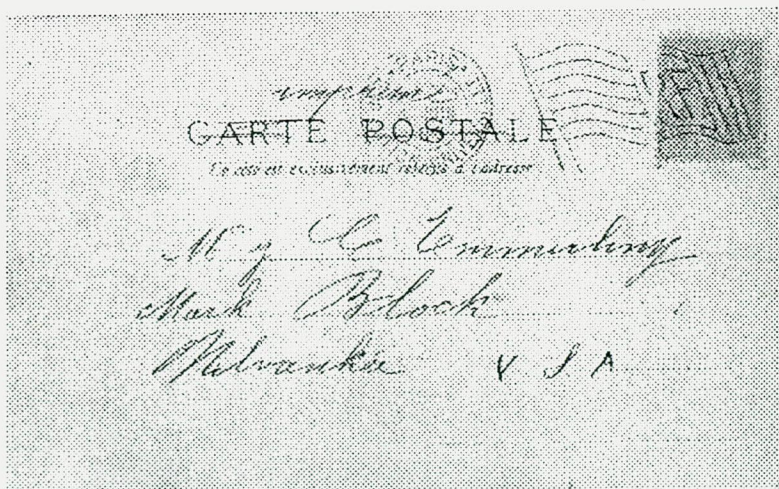 imprimé
CARTE POSTALE
Ce côté est exclusivement réservé à l'adresse
Mr J C Emmerling
Mack Block
Milvaukie U S A